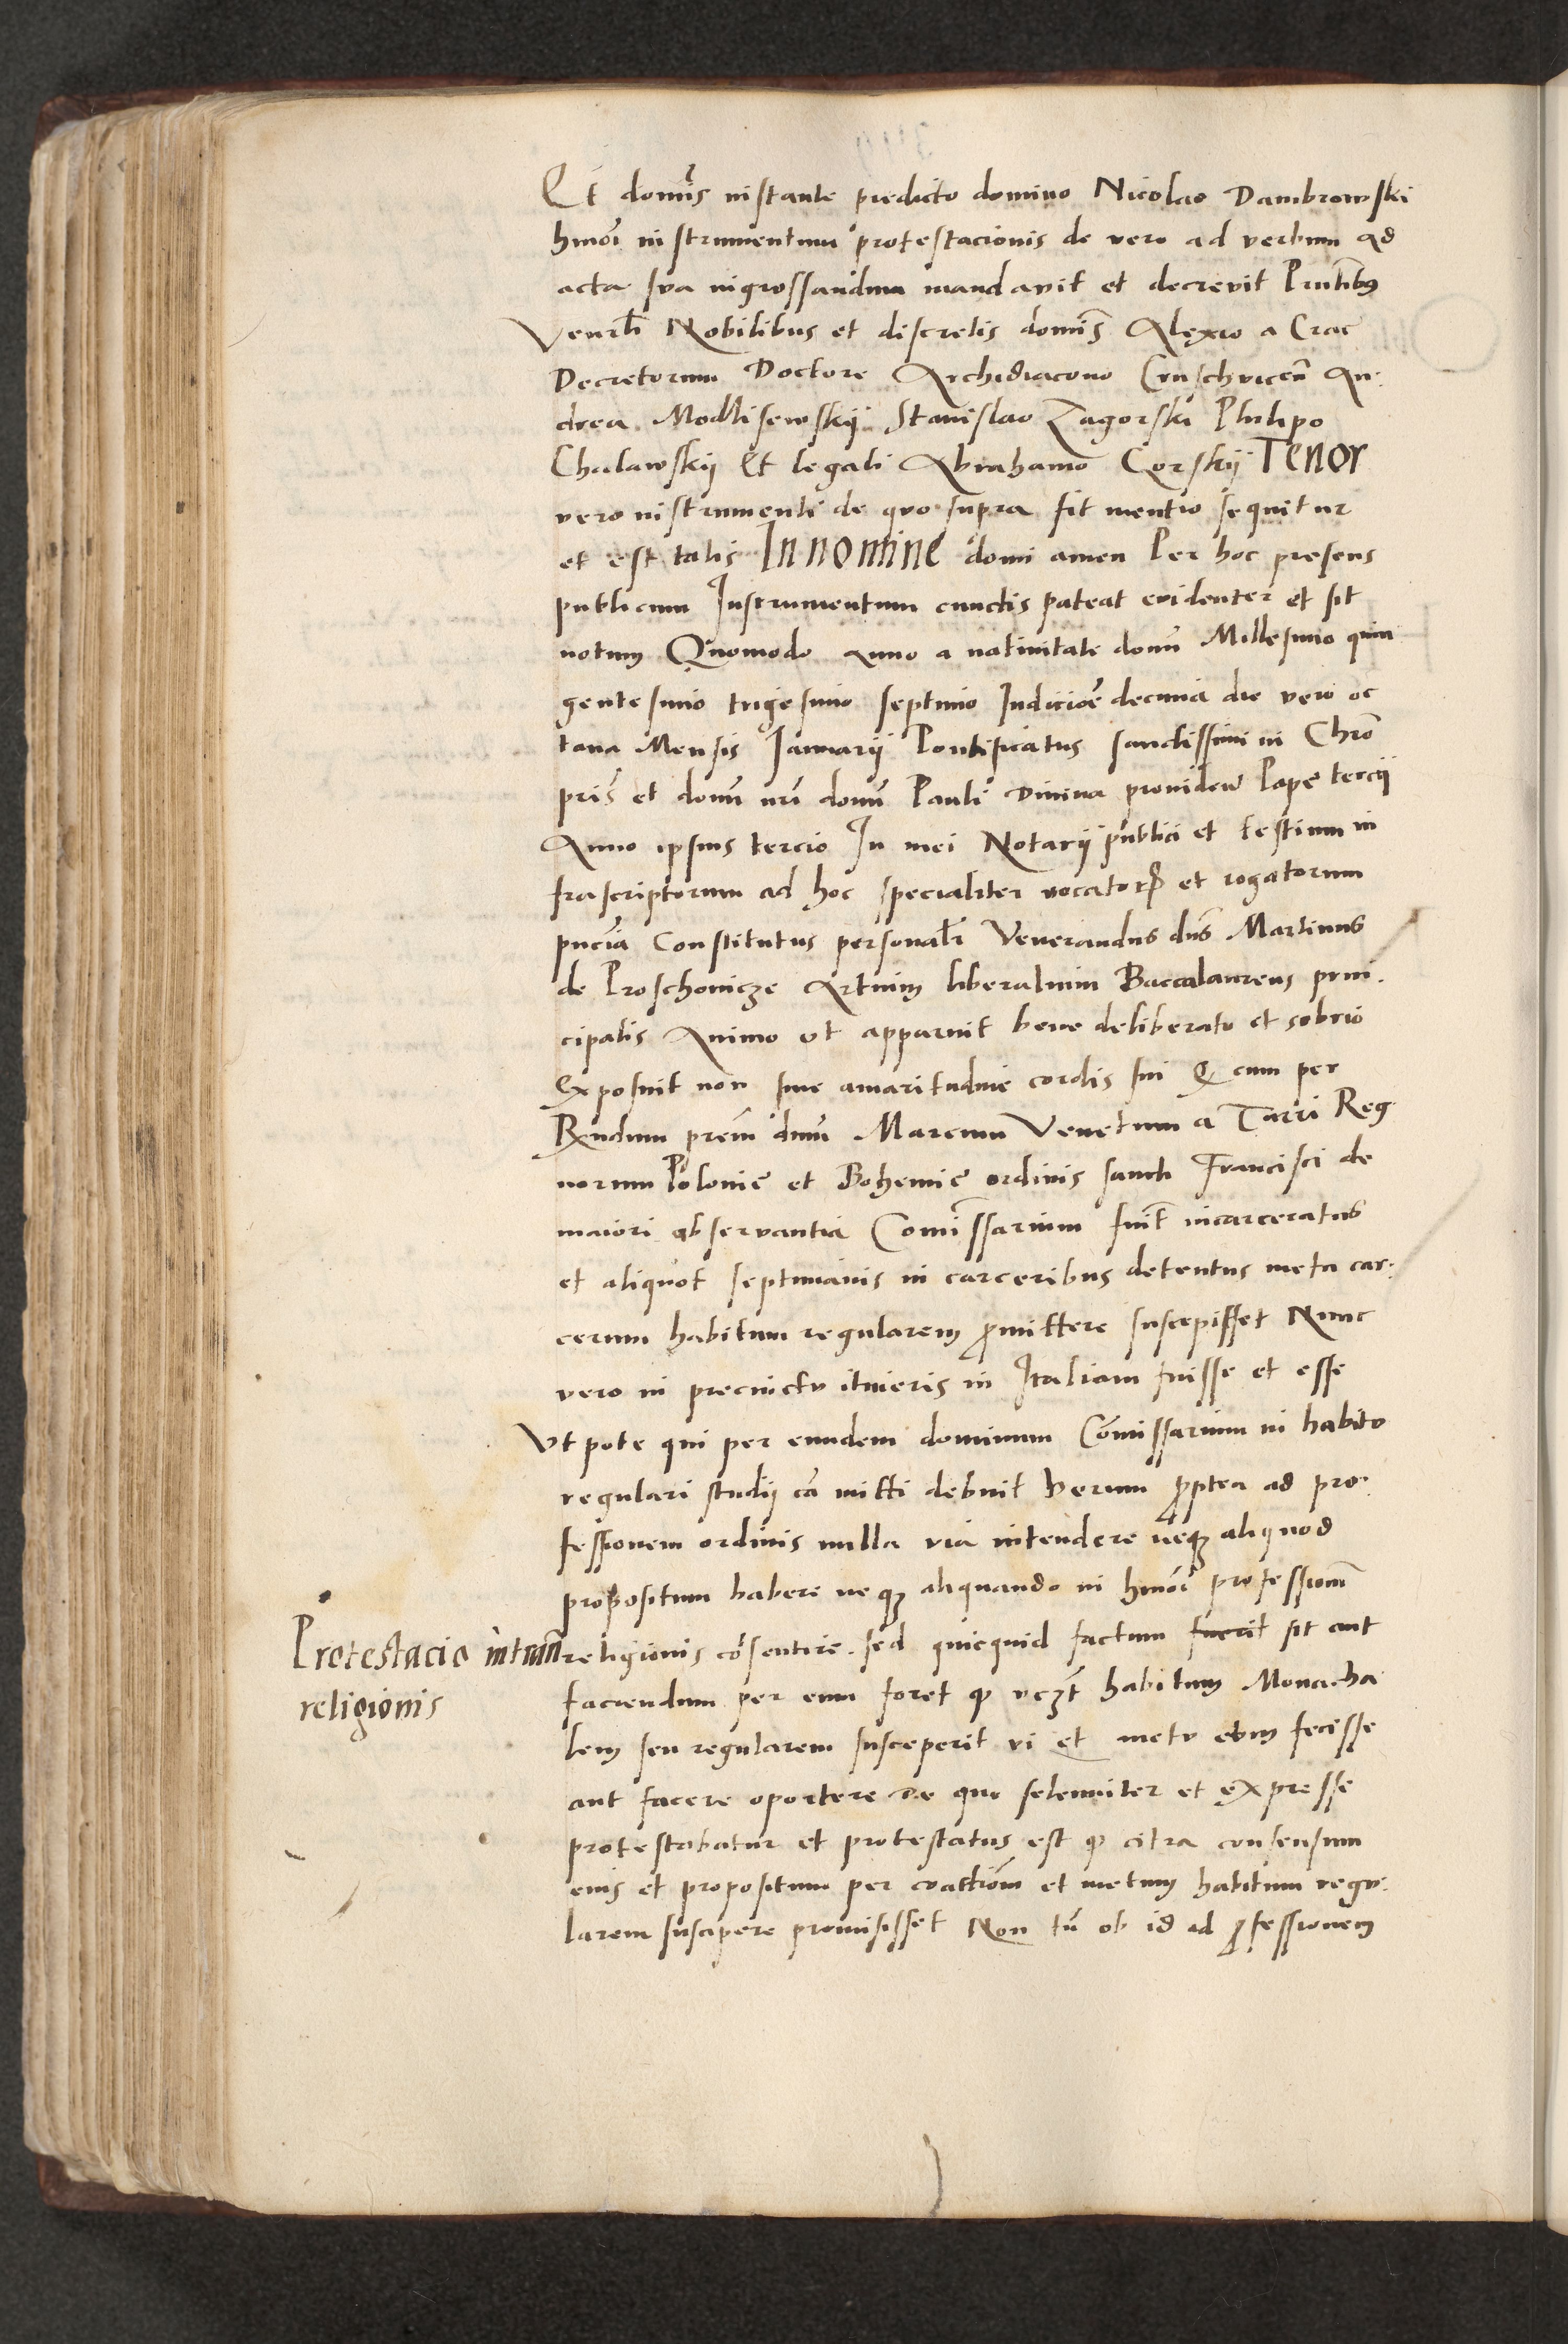 Et domīs instante predicto domino Nicolao Dambrowski
hmōi instrumentum protestacionis de vero ad verbum ad
acta sva ingrossandum mandavit et decrevit Pñtibus
Venrli Nobilibus et discretis domīs Alexio a Crac
Decretorum Doctore Archidiacono Cruschvicen̄ An⸗
drea Modlisewskij Stanislao Zagorski Philipo
Chalawskij Et legali Abrahamo Gorskij Tenor
vero instrumenti de qvo supra fit mentio sequitur
et est talis In nomine domi amen Per hoc presens
publicum Instrumentum cunctis pateat evidenter et sit
notum Quomodo Anno a nativitate domī Millesimo quin
gentesimo trigesimo septimo Indicioē decima die vero oc
tava Mensis Januarij Pontificatus sanctissimi in Chrō
pris̄ et domī nrī domī Pauli Divina providen̄ Pape tercij
Anno ipsius tercio In mei Notarij publici et testium in
frascriptorum ad hoc specialiter vocatorꝝ et rogatorum
pn̄cia Constitutus personal̄r Venerandus dn̄s Martinus
de Proschovicze Artium liberalium Baccalaureus prin⸗
cipalis Animo vt apparuit bene deliberato et sobrio
exposuit non sine amaritudine cordis sui Q cum per
Rx̄ndum prem̄ dnm̄ Marcum Venetum a Turri Reg
norum Polonię et Bohemię ordinis sancti Francisci de
maiori observantia Comīssarium fuit̄ incarceratus
et aliquot septimanis in carceribus detentus meta car⸗
cerum habitum regularem ꝓmittere suscepisset Nunc
vero in precinctv itineris in Italiam fuisse et esse
Vtpote qui per eundem dominum Com̄issarium in habitv
regulari studij cā mitti debuit Verum ꝓptea ad pro⸗
fessionem ordinis nulla via intendere neqꝫ aliquod
propositum habere neqꝫ aliquando in hmōi professionē
religionis cōsentire. sed quicquid factum fuerit sit aut
faciendum per eum foret ꝙ vcꝫt habitum Monacha
lem seu regularem susceperit vi et metv evm fecisse
aut facere oportere De quo solenniter et expresse
protestabatur et protestatus est ꝙ citra consensum
eius et propositum per coactionē et metum habitum regv⸗
larem suscipere promisisset Non tn̄ ob id ad ꝓfessionem
Protestacio intran̄
religionis